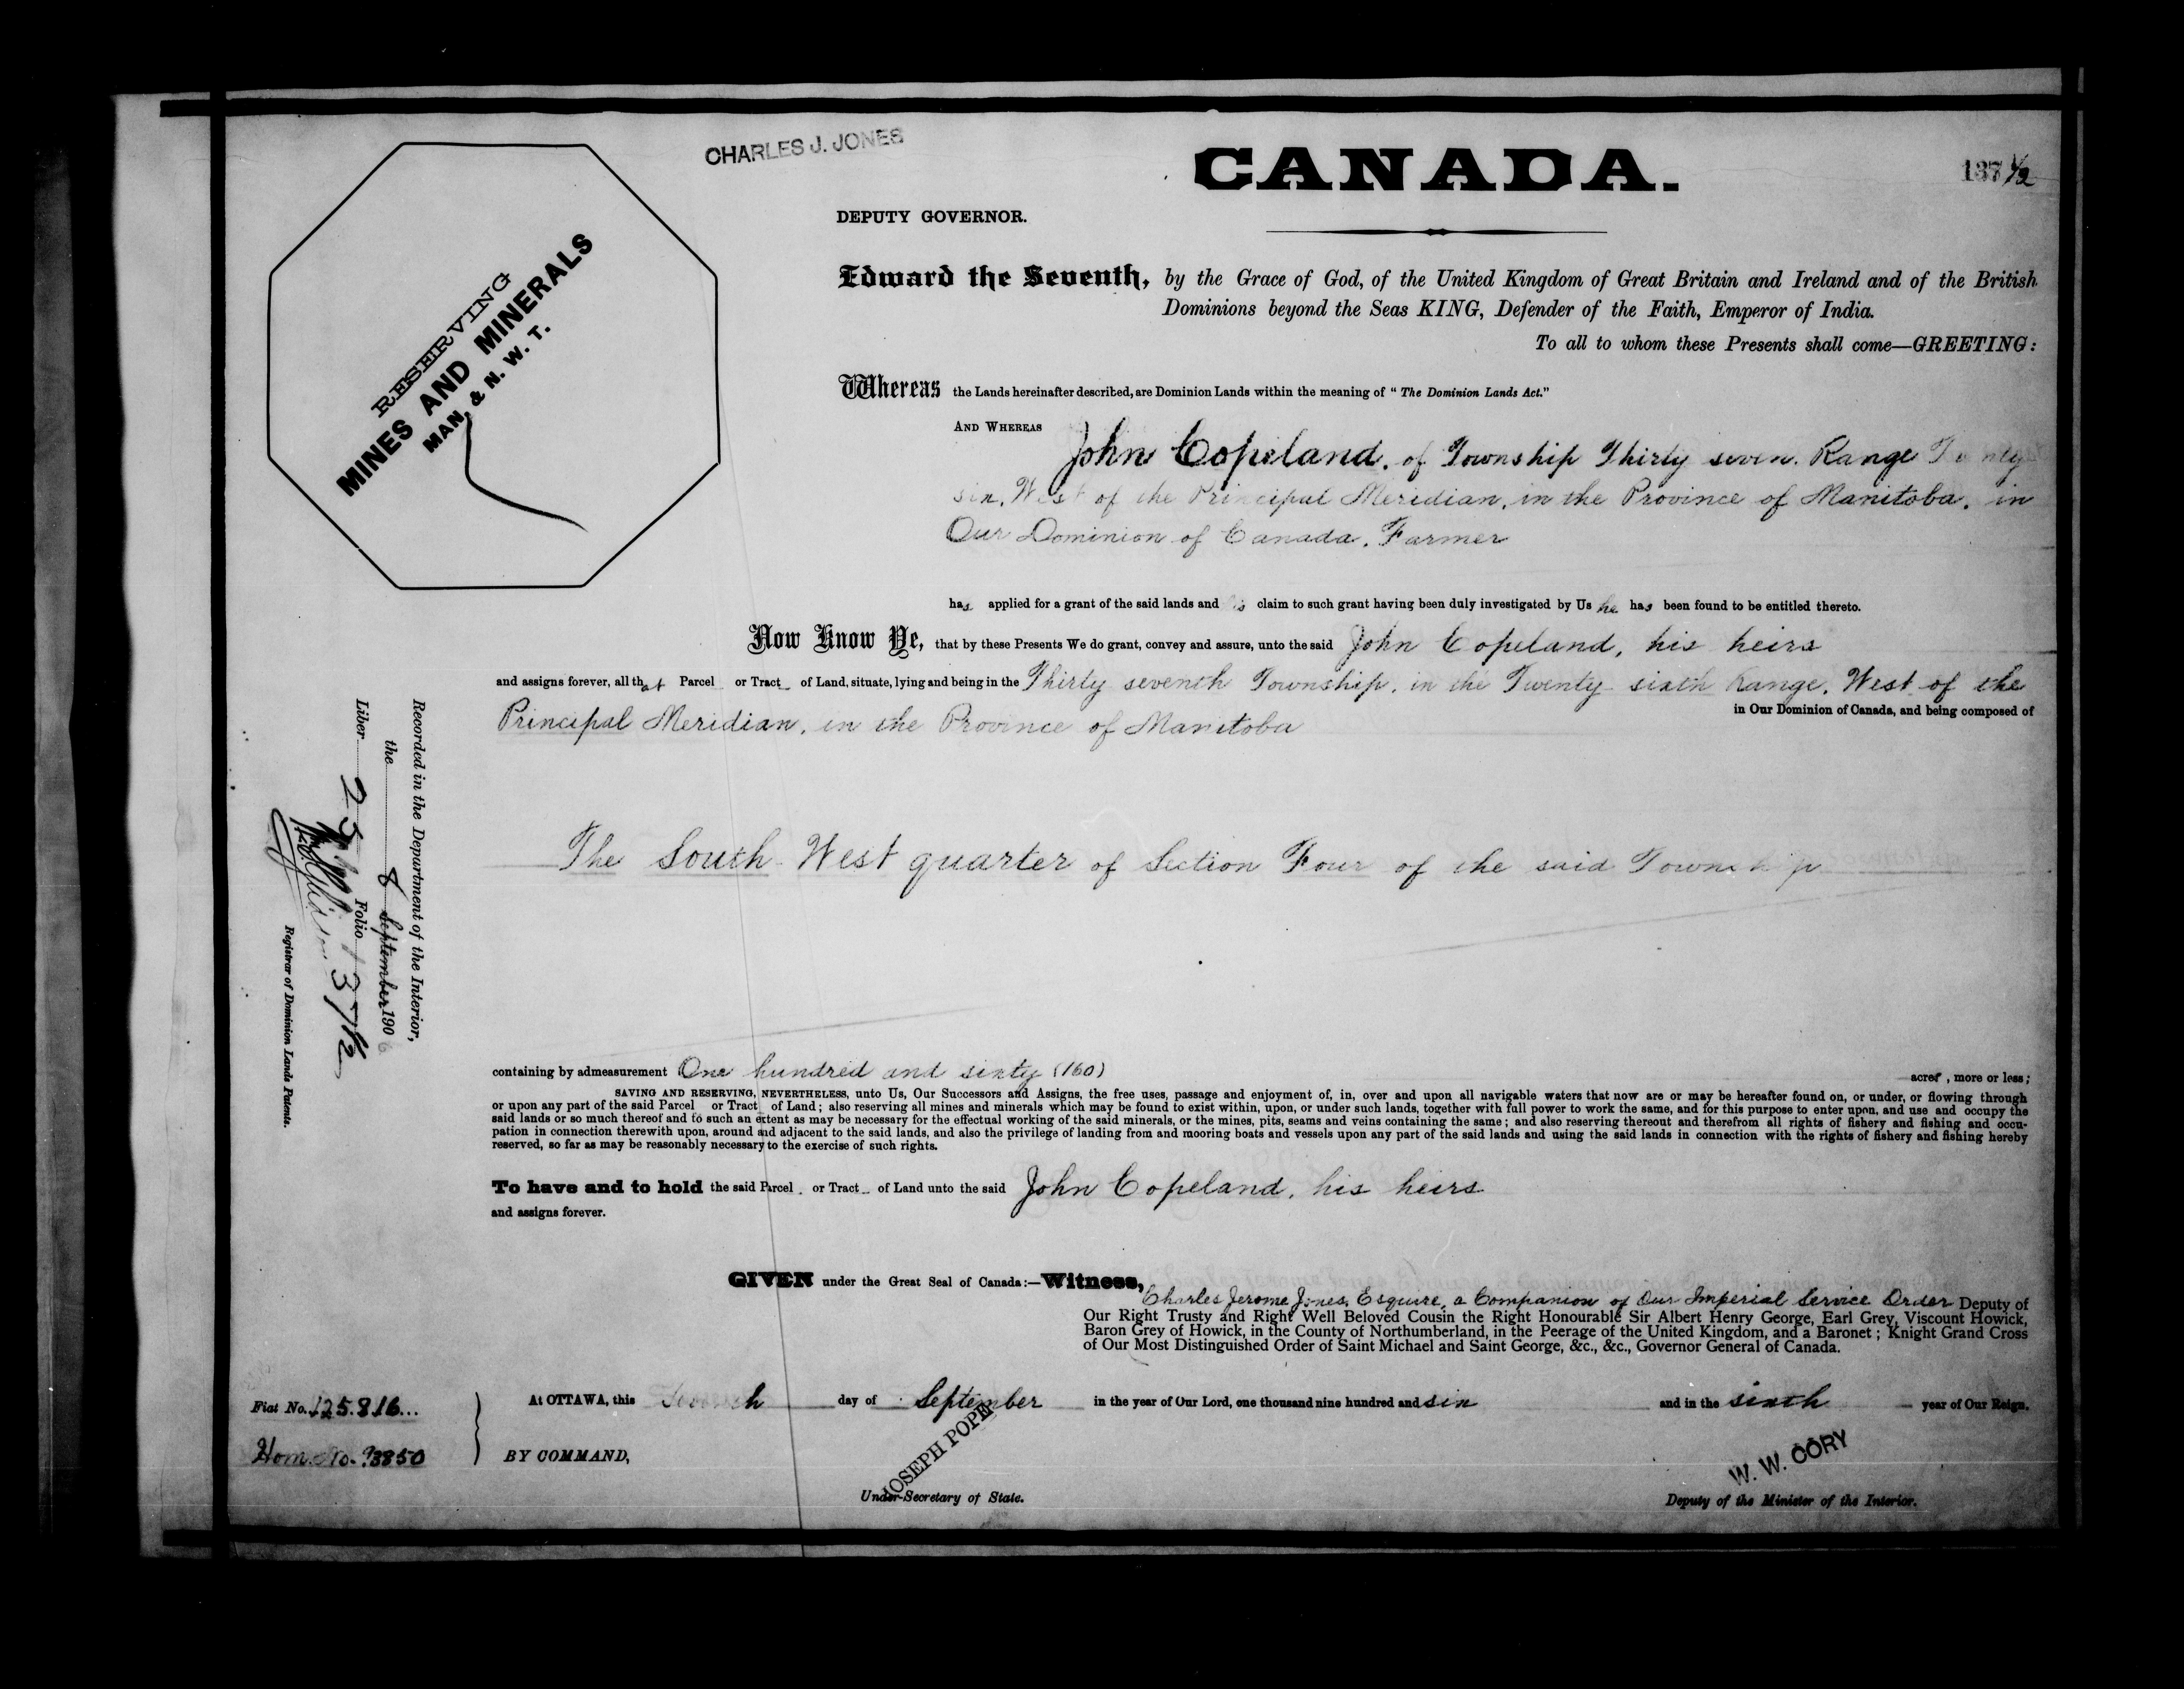 CHARLES J. JONES
CANADA.
137 1/2
DEPUTY GOVERNOR.
RESERVING
MINES AND MINERALS
MAN. & N. W. T.
Edward the Seventh, by the Grace of God, of the United Kingdom of Great Britain and Ireland and of the British
Dominions beyond the Seas KING, Defender of the Faith, Emperor of India.
To all to whom these Presents shall come—GREETING:
Whereas the Lands hereinafter described, are Dominion Lands within the meaning of "The Dominion Lands Act."
AND WHEREAS
John Copeland, of Township Thirty seven, Range Twenty
six, West of the Principal Meridian, in the Province of Manitoba, in
Our Dominion of Canada, Farmer
has applied for a grant of the said lands and his claim to such grant having been duly investigated by Us he has been found to be entitled thereto.
Now Know Ye, that by these Presents We do grant, convey and assure, unto the said John Copeland, his heirs
and assigns forever, all that Parcel or Tract of Land, situate, lying and being in the Thirty seventh Township, in the Twenty sixth Range, West of the
Principal Meridian, in the Province of Manitoba
in Our Dominion of Canada, and being composed of
The South West quarter of Section Four of the said Township
Recorded in the Department of the Interior,
the 8 September 1906
Liber 25 Folio 137 1/2
Registrar of Dominion Lands Patents.
containing by admeasurement One hundred and sixty (160) acres, more or less;
SAVING AND RESERVING, NEVERTHELESS, unto Us, Our Successors and Assigns, the free uses, passage and enjoyment of, in, over and upon all navigable waters that now are or may be hereafter found on, or under, or flowing through
or upon any part of the said Parcel or Tract of Land; also reserving all mines and minerals which may be found to exist within, upon, or under such lands, together with full power to work the same, and for this purpose to enter upon, and use and occupy the
said lands or so much thereof and to such an extent as may be necessary for the effectual working of the said minerals, or the mines, pits, seams and veins containing the same; and also reserving thereout and therefrom all rights of fishery and fishing and occu-
pation in connection therewith upon, around and adjacent to the said lands, and also the privilege of landing from and mooring boats and vessels upon any part of the said lands and using the said lands in connection with the rights of fishery and fishing hereby
reserved, so far as may be reasonably necessary to the exercise of such rights.
To have and to hold the said Parcel or Tract of Land unto the said John Copeland, his heirs
and assigns forever.
GIVEN under the Great Seal of Canada:—Witness,
Charles Jerome Jones, Esquire, a Companion of Our Imperial Service Order Deputy of
Our Right Trusty and Right Well Beloved Cousin the Right Honourable Sir Albert Henry George, Earl Grey, Viscount Howick,
Baron Grey of Howick, in the County of Northumberland, in the Peerage of the United Kingdom, and a Baronet; Knight Grand Cross
of Our Most Distinguished Order of Saint Michael and Saint George, &c., &c., Governor General of Canada.
Fiat No. 125.816
At OTTAWA, this day of September in the year of Our Lord, one thousand nine hundred and six and in the sixth year of Our Reign.
Hom. No. 93850
BY COMMAND,
JOSEPH POPE
Under-Secretary of State.
W. W. CORY
Deputy of the Minister of the Interior.